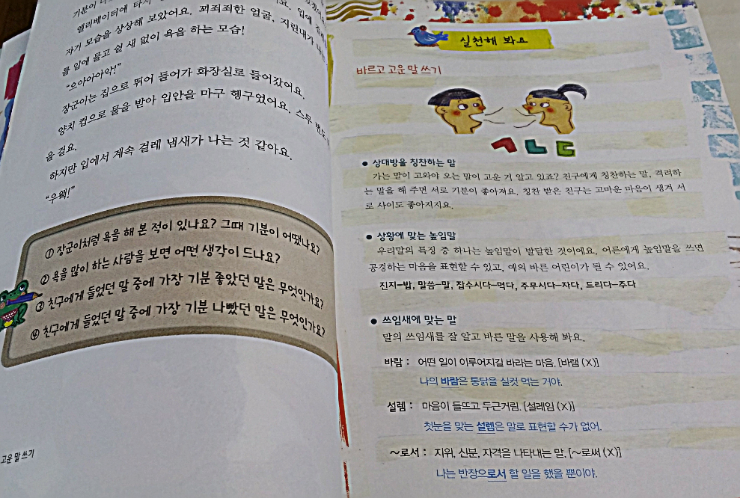 엘리베이터에 타
자기 모습을 상상해 보았어요. 꾀죄죄한 얼굴, 지린내가
를 입에 물고 쉴 새 없이 욕을 하는 모습!
"으아아아악!"
장군이는 집으로 뛰어 들어가 화장실로 들어갔어요.
양치 컵으로 물을 받아 입안을 마구 헹구었어요. 스무 번
을 걸요.
하지만 입에서 계속 걸레 냄새가 나는 것 같아요.
"우웩!"
① 장군이처럼 욕을 해 본 적이 있나요? 그때 기분이 어땠나요?
② 욕을 많이 하는 사람을 보면 어떤 생각이 드나요?
③ 친구에게 들었던 말 중에 가장 기분 좋았던 말은 무엇인가요?
④ 친구에게 들었던 말 중에 가장 기분 나빴던 말은 무엇인가요?
고운 말 쓰기
실천해 봐요
바르고 고운 말 쓰기
ㄱㄴㄷ
● 상대방을 칭찬하는 말
가는 말이 고와야 오는 말이 고운 거 알고 있죠? 친구에게 칭찬하는 말, 격려하
는 말을 해 주면 서로 기분이 좋아져요. 칭찬 받은 친구는 고마운 마음이 생겨 서
로 사이도 좋아지지요.
● 상황에 맞는 높임말
우리말의 특징 중 하나는 높임말이 발달한 것이에요. 어른에게 높임말을 쓰면
공경하는 마음을 표현할 수 있고, 예의 바른 어린이가 될 수 있어요.
진지-밥, 말씀-말, 잡수시다-먹다, 주무시다-자다, 드리다-주다
● 쓰임새에 맞는 말
말의 쓰임새를 잘 알고 바른 말을 사용해 봐요.
바람 : 어떤 일이 이루어지길 바라는 마음. [바램 (X)]
나의 바람은 통닭을 실컷 먹는 거야.
설렘 : 마음이 들뜨고 두근거림. [설레임 (X)]
첫눈을 맞는 설렘은 말로 표현할 수가 없어.
~로서 : 지위, 신분, 자격을 나타내는 말. [~로써 (X)]
나는 반장으로서 할 일을 했을 뿐이야.